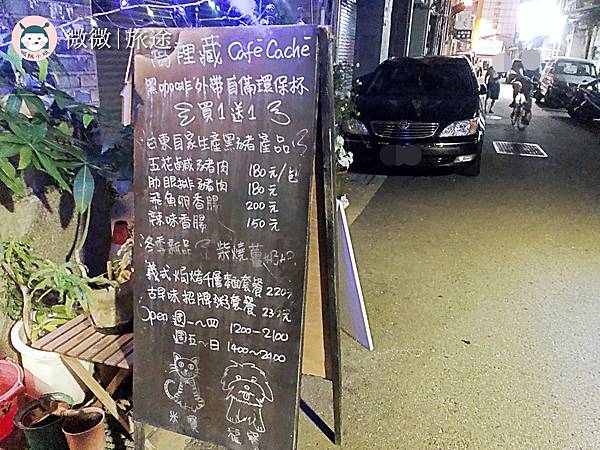 微微|旅途
裡藏 Café Caché
黑咖啡外帶自備環保杯
買1送1
台東自家生產黑豬產品
五花鹹豬肉 180元/包
肋眼排豬肉 180元
飛魚卵香腸 200元
辣味香腸 150元
冬季新品 柴燒薑
義式焗烤千層麵套餐 220元
古早味招牌粥套餐 230元
Open 週一~四 1200-2100
週五~日 1400~2400
米寶
寶